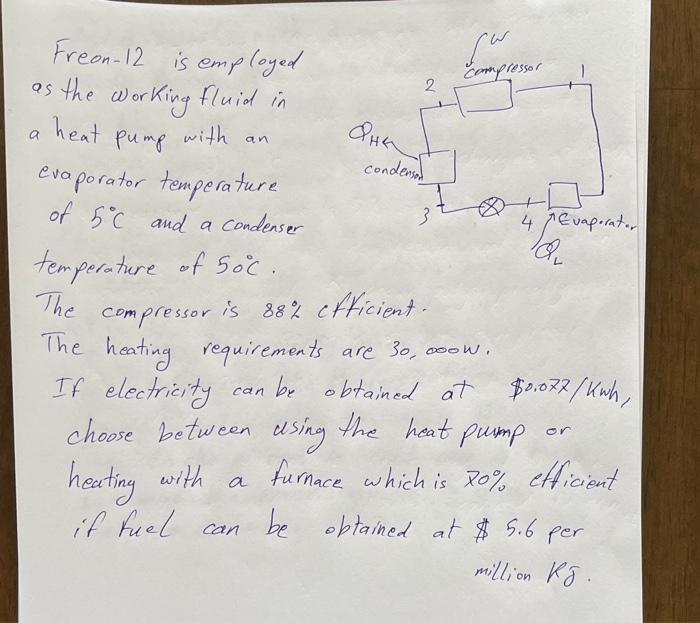 Freon-12 is employed
as the working fluid in
a heat pump with an
evaporator temperature
of 5°C and a condenser
temperature of 50°C.
The compressor is 88% efficient.
The heating requirements are 30,000W.
If electricity can be obtained at $0.077/Kwh,
choose between using the heat pump or
heating with a furnace which is 70% efficient
if fuel can be obtained at $ 5.6 per
million KJ.
W
compressor
1
2
QH
condenser
3
4
Evaporator
QL